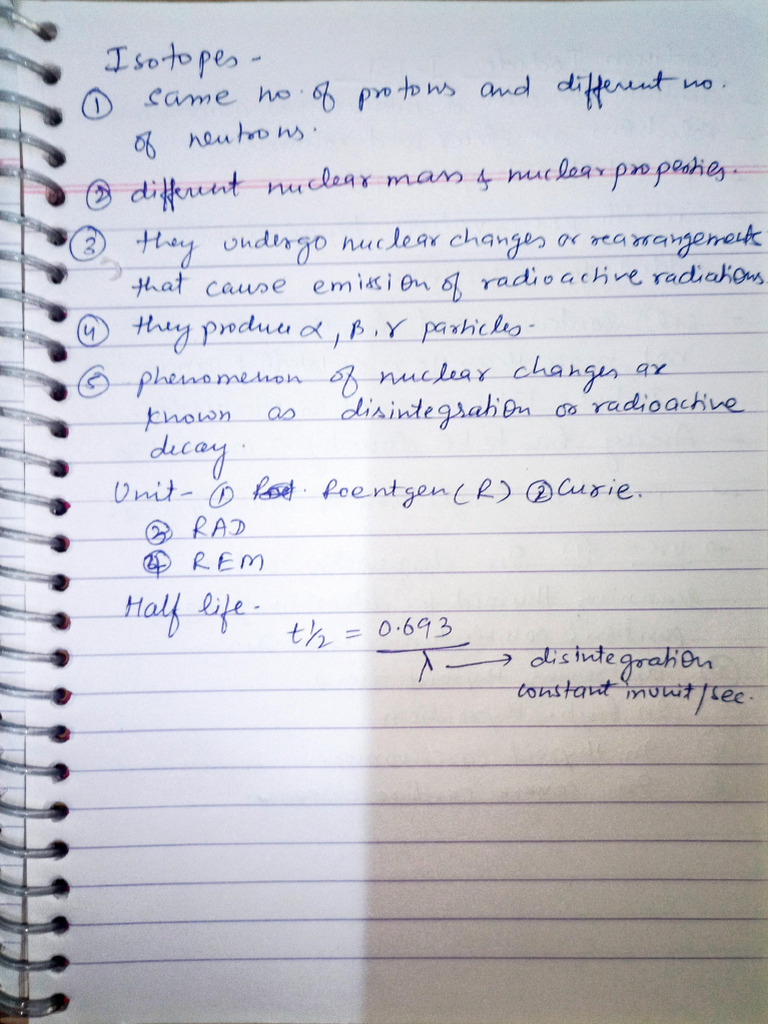 Isotopes -
① same no. of protons and different no.
of neutrons.
② different nuclear mass & nuclear properties.
③ they undergo nuclear changes or rearrangements
that cause emission of radioactive radiations
④ they produce α, β, γ particles -
⑤ phenomenon of nuclear changes are
known as disintegration or radioactive
decay.
Unit - ① Roentgen (R) ② Curie.
③ RAD
④ REM
Half life -
t½ = 0.693
λ → disintegration
constant in unit/sec.